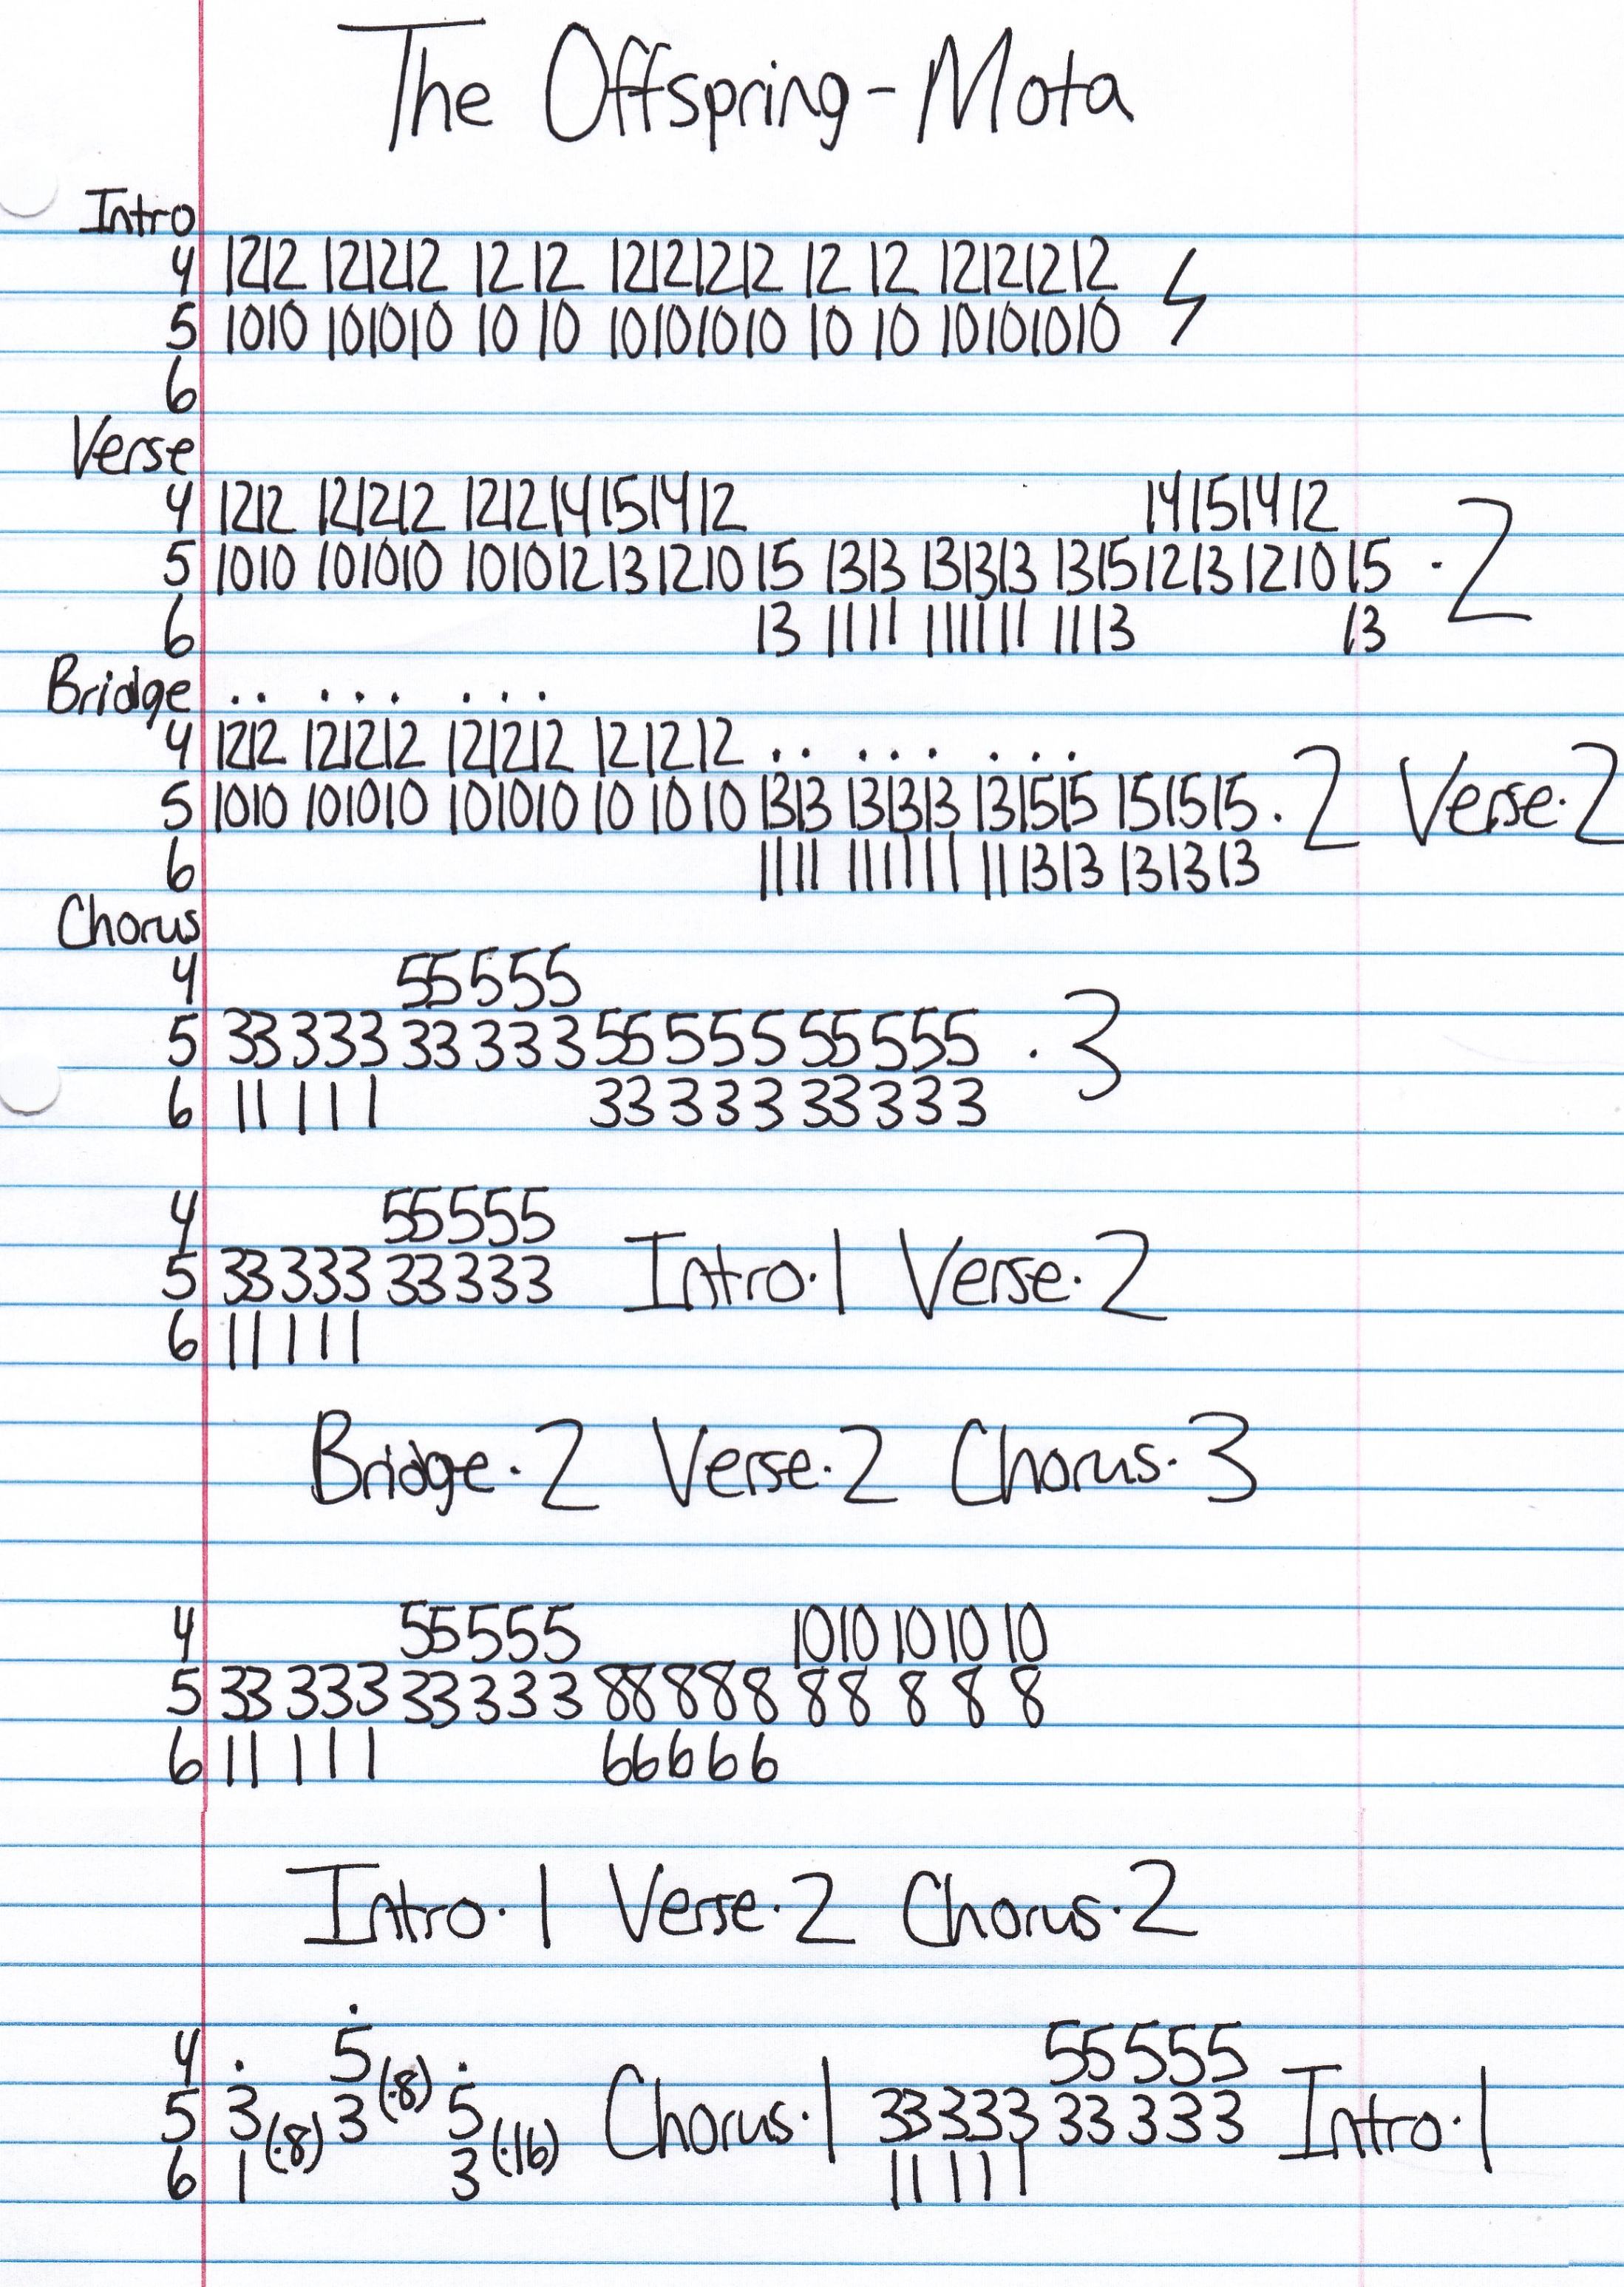 The Offspring - Mota
Intro
4 1212 121212 12 12 12121212 12 12 12121212
5 1010 101010 10 10 10101010 10 10 10101010
6
Verse
4 1212 121212 121214151412 14151412
5 1010 101010 10101213121015 1313 131313 1315121312 1015 · 2
6 13 1111 111111 1113 13
Bridge .. ... ...
4 1212 121212 121212 12 12 12 .. ... ...
5 1010 101010 101010 10 10 10 1313 131313 131515 151515 · 2 Verse · 2
6 1111 111111 111313 131313
Chorus
4 55555
5 33 333 33 33355 555 55555 · 3
6 11 111 33 333 33333
4 55555
5 33 333 33333 Intro · 1 Verse · 2
6 11 111
Bridge · 2 Verse · 2 Chorus · 3
4 55555 1010 10 10 10
5 33 333 33 333 88888 88 8 8 8
6 11 111 66666
Intro · 1 Verse · 2 Chorus · 2
4 . 5 .
5 3 3 (·8) 5 Chorus · 1 33333 33333 Intro · 1
6 1 (·8) 3 (·16) 11 111
55555